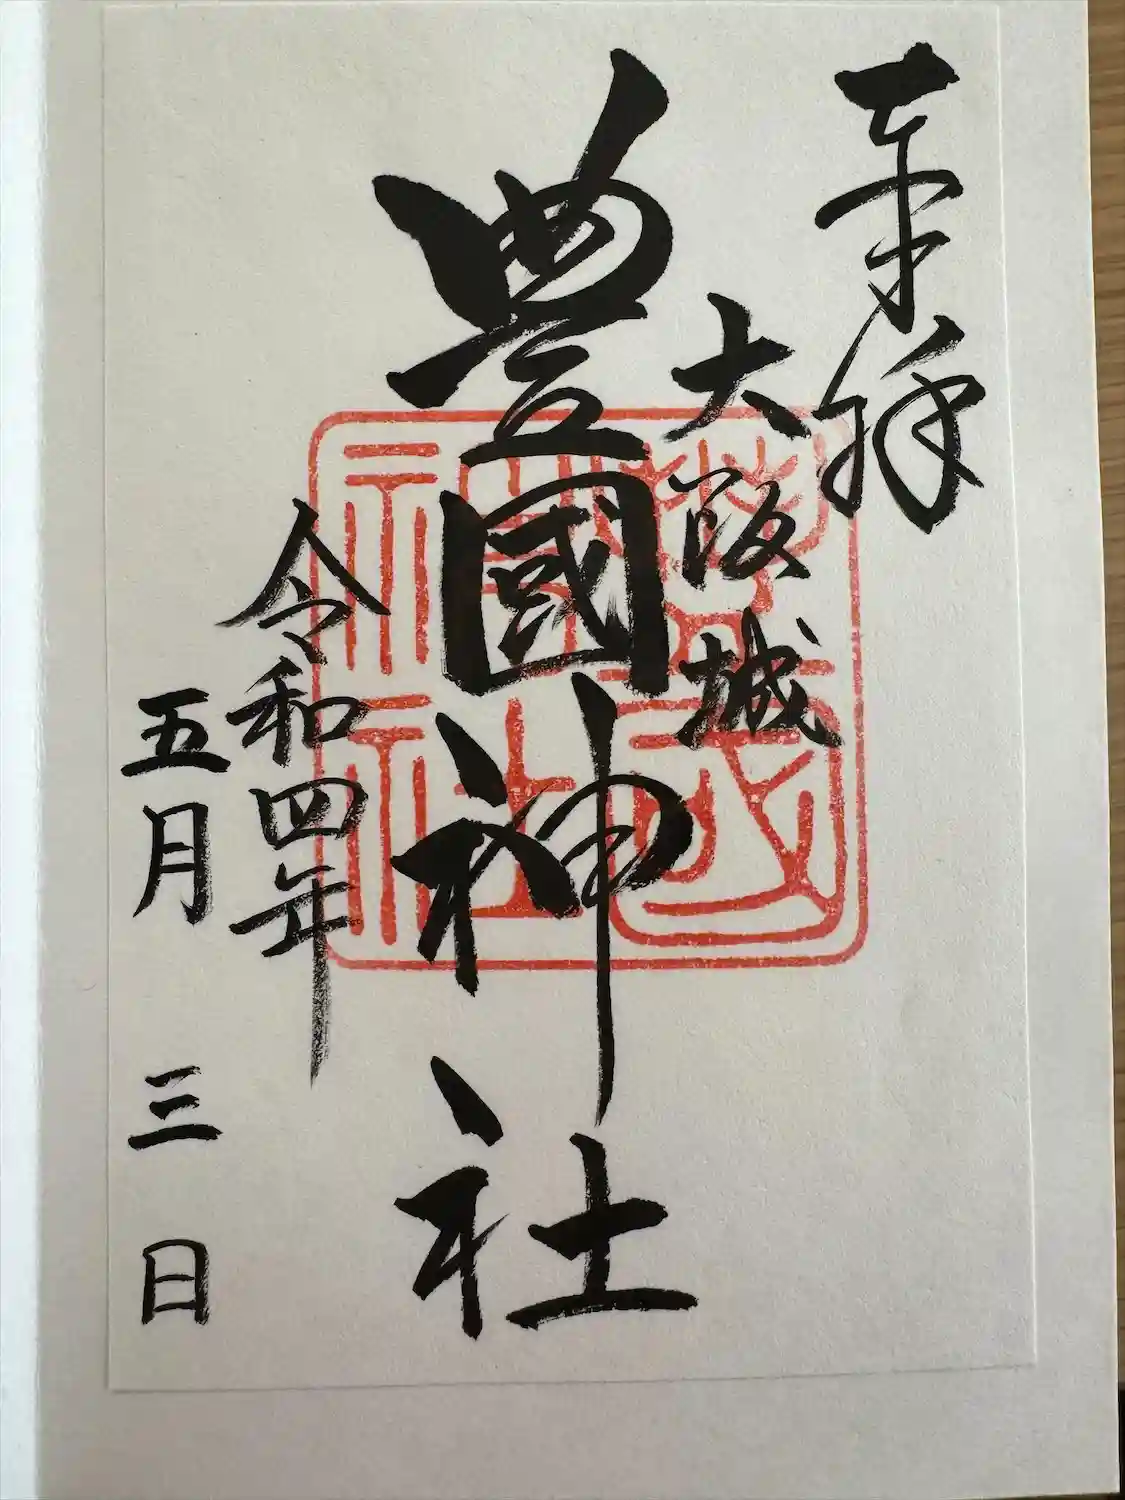 奉拝
大阪城
豊國神社
令和四年
五月三日
豊國神社